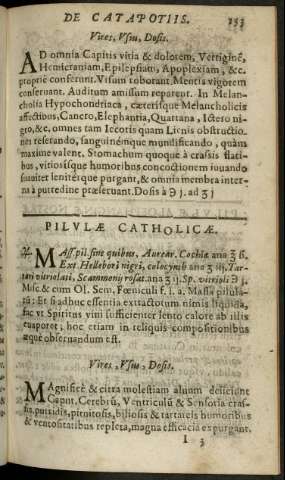 DE CATAPOTIIS. 133
Vires, Usus, Dosis.
AD omnia Capitis vitia & dolorem, Vertiginē,
Hemicraniam, Epilepsiam, Apoplexiam, &c.
propriè conferunt. Visum roborant. Mentis vigorem
conservant. Auditum amissum reparent. In Melan-
cholia Hypochondriaca, cæterisque Melancholicis
affectibus, Cancro, Elephantia, Quartana, Ictero ni-
gro, &c. omnes tam Iecoris quam Lienis obstructio-
nes reserando, sanguinémque mundificando, quàm
maximè valent. Stomachum quoque à crassis flati-
bus, vitiosisque humoribus concoctionem iuuando
suaviter leniterque purgant, & omnia membra inter-
na à putredine præservant. Dosis à ℈ j. ad ʒ j
PILVLÆ CATHOLICÆ.
℞. Mass. pil. sine quibus, Aurear. Cochiæ ana ʒ ß.
Ext Hellebori nigri, colocynth ana ʒ iij, Tar-
tari vitriolati, Scammonij rosat. ana ʒ ij. Sp. vitrioli ℈ j.
Misc & cum Ol. Sem. Fœniculi f. i. a. Massa pilula-
rū; Et si adhuc essentia extractorum nimis liquida,
fac vt Spiritus vini sufficienter lento calore ab illis
euaporet; hoc etiam in reliquis compositionibus
æque obseruandum est.
Vires, Usus, Dosis.
MAgnificè & citra molestiam aluum deiiciunt
Caput, Cerebrū, Ventriculū & Sensoria cras-
sis, putridis, pituitosis, biliosis & tartareis humoribus
& ventositatibus repleta, magna efficacia expurgant.
I 3